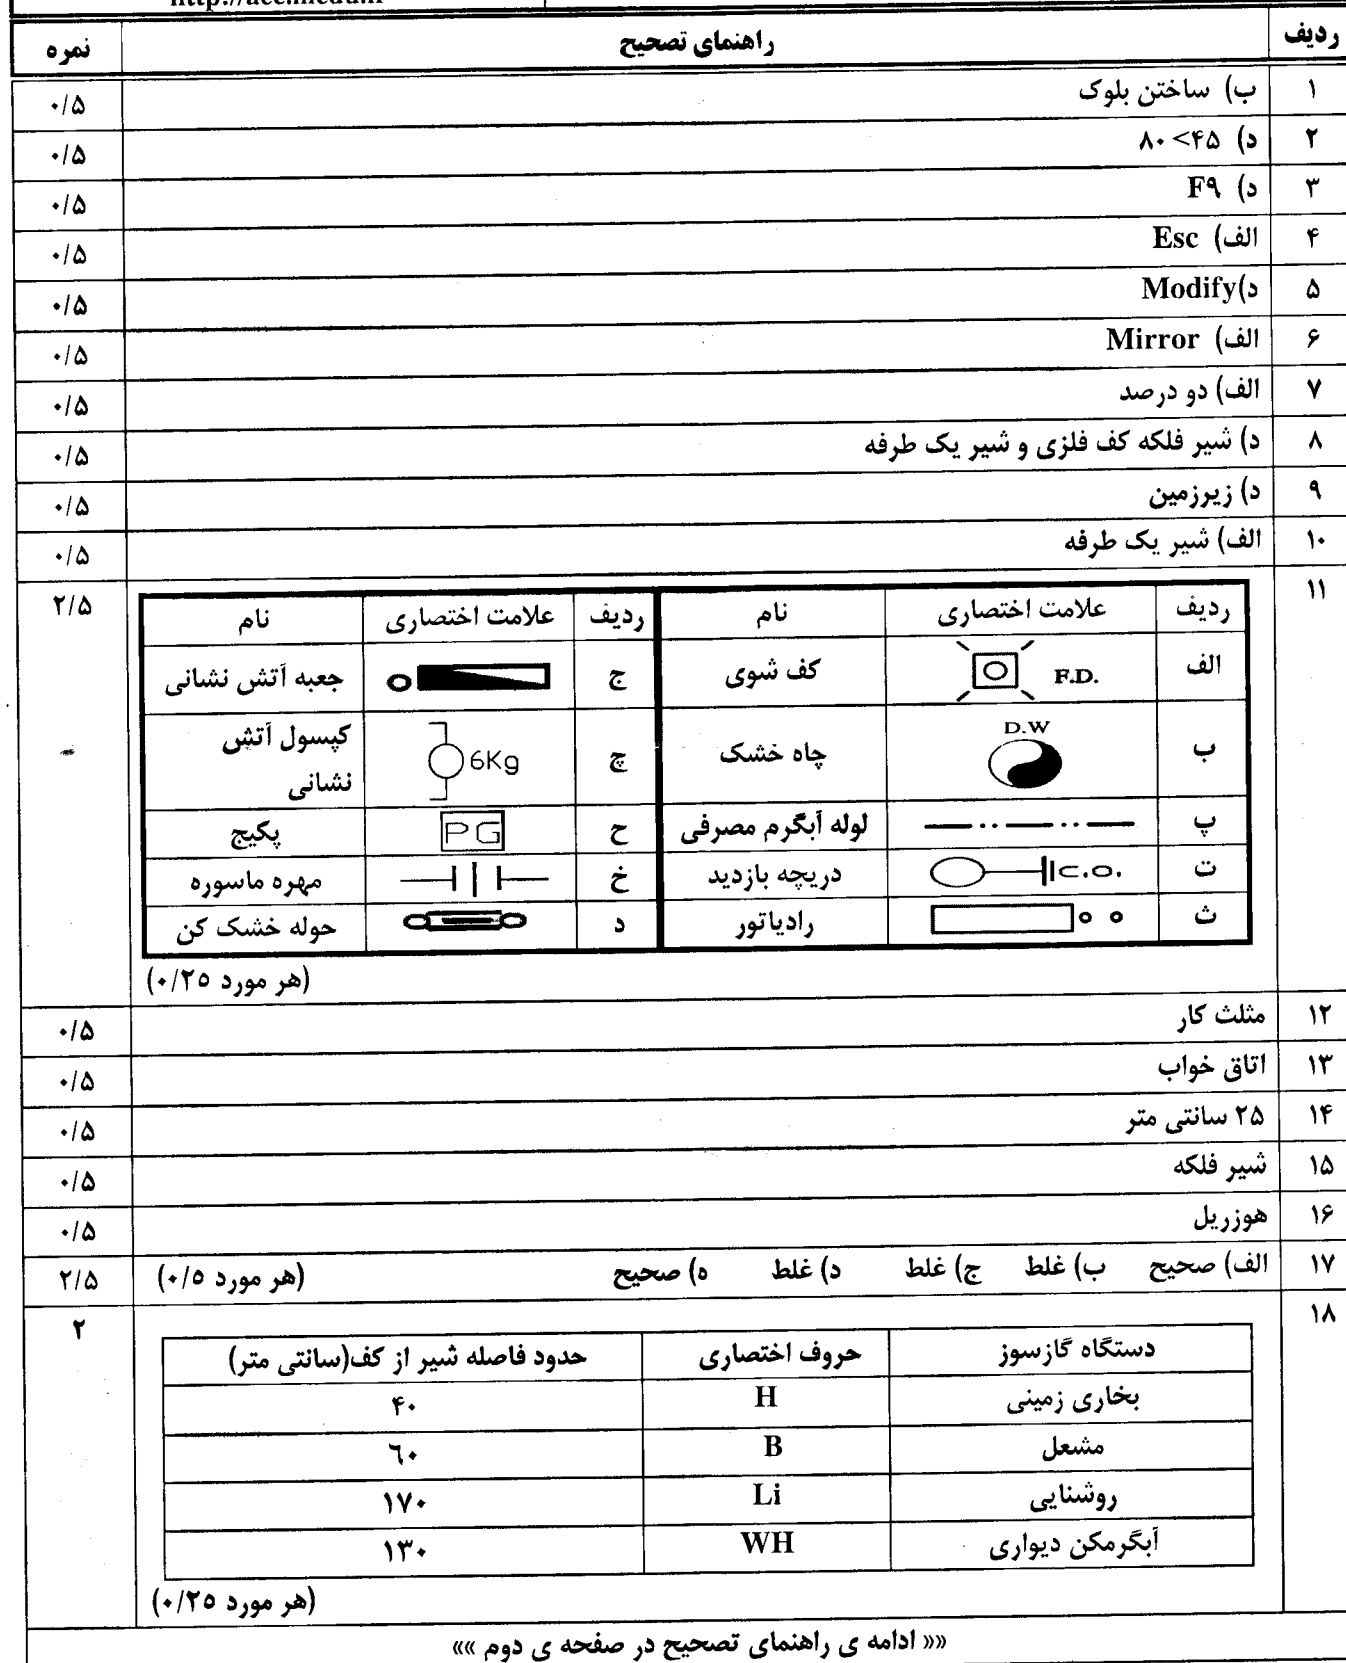 ردیف راهنمای تصحیح نمره
۱ ب) ساختن بلوک ۰/۵
۲ د) ۴۵>۸۰ ۰/۵
۳ د) F۹ ۰/۵
۴ الف) Esc ۰/۵
۵ د)Modify ۰/۵
۶ الف) Mirror ۰/۵
۷ الف) دو درصد ۰/۵
۸ د) شیر فلکه کف فلزی و شیر یک طرفه ۰/۵
۹ د) زیرزمین ۰/۵
۱۰ الف) شیر یک طرفه ۰/۵
۱۱ ۲/۵
ردیف علامت اختصاری نام ردیف علامت اختصاری نام
الف F.D. کف شوی ج جعبه آتش نشانی
ب D.W چاه خشک چ 6Kg کپسول آتش
نشانی
پ لوله آبگرم مصرفی ح PG پکیج
ت C.O. دریچه بازدید خ مهره ماسوره
ث رادیاتور د حوله خشک کن
(هر مورد ۰/۲۵)
۱۲ مثلث کار ۰/۵
۱۳ اتاق خواب ۰/۵
۱۴ ۲۵ سانتی متر ۰/۵
۱۵ شیر فلکه ۰/۵
۱۶ هوزریل ۰/۵
۱۷ الف) صحیح ب) غلط ج) غلط د) غلط ه) صحیح (هر مورد ۰/۵) ۲/۵
۱۸ ۲
دستگاه گازسوز حروف اختصاری حدود فاصله شیر از کف(سانتی متر)
بخاری زمینی H ۴۰
مشعل B ۶۰
روشنایی Li ۱۷۰
آبگرمکن دیواری WH ۱۳۰
(هر مورد ۰/۲۵)
«« ادامه ی راهنمای تصحیح در صفحه ی دوم »»